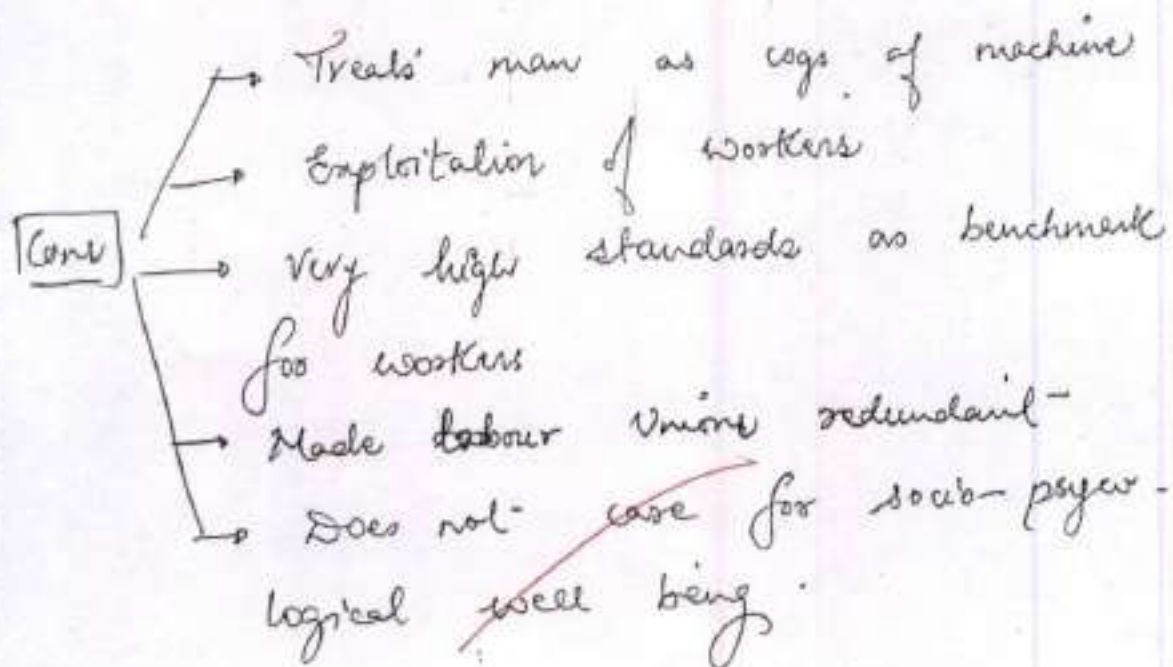 Treats man as cogs of machine
Exploitation of workers
Cons
Very high standards as benchmark
for workers
Made labour Unions redundant
Does not care for socio-psycho-
logical well being.